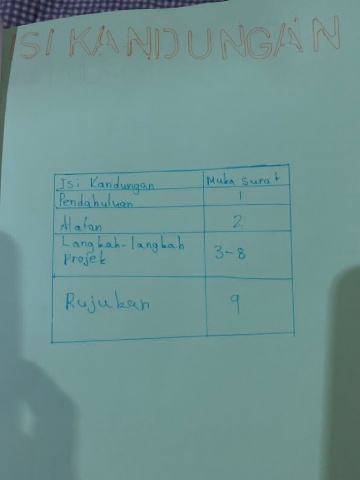 SI KANDUNGAN
Isi Kandungan Muka Surat
Pendahuluan 1
Alatan 2
Langkah-langkah
Projek 3-8
Rujukan 9